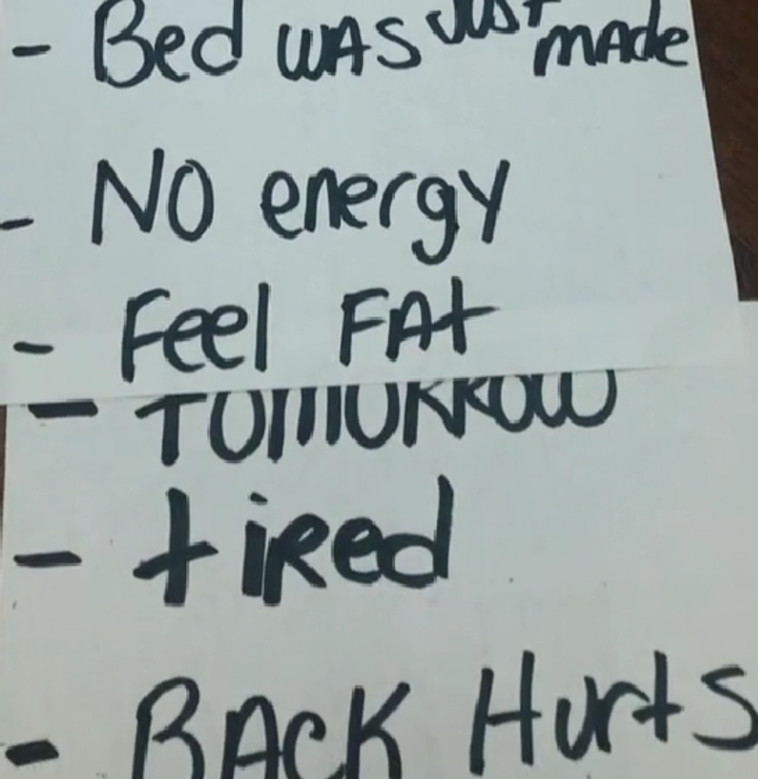 - Bed was just made
- No energy
- Feel FAt
- TOMORROW
- tired
- BACK Hurts